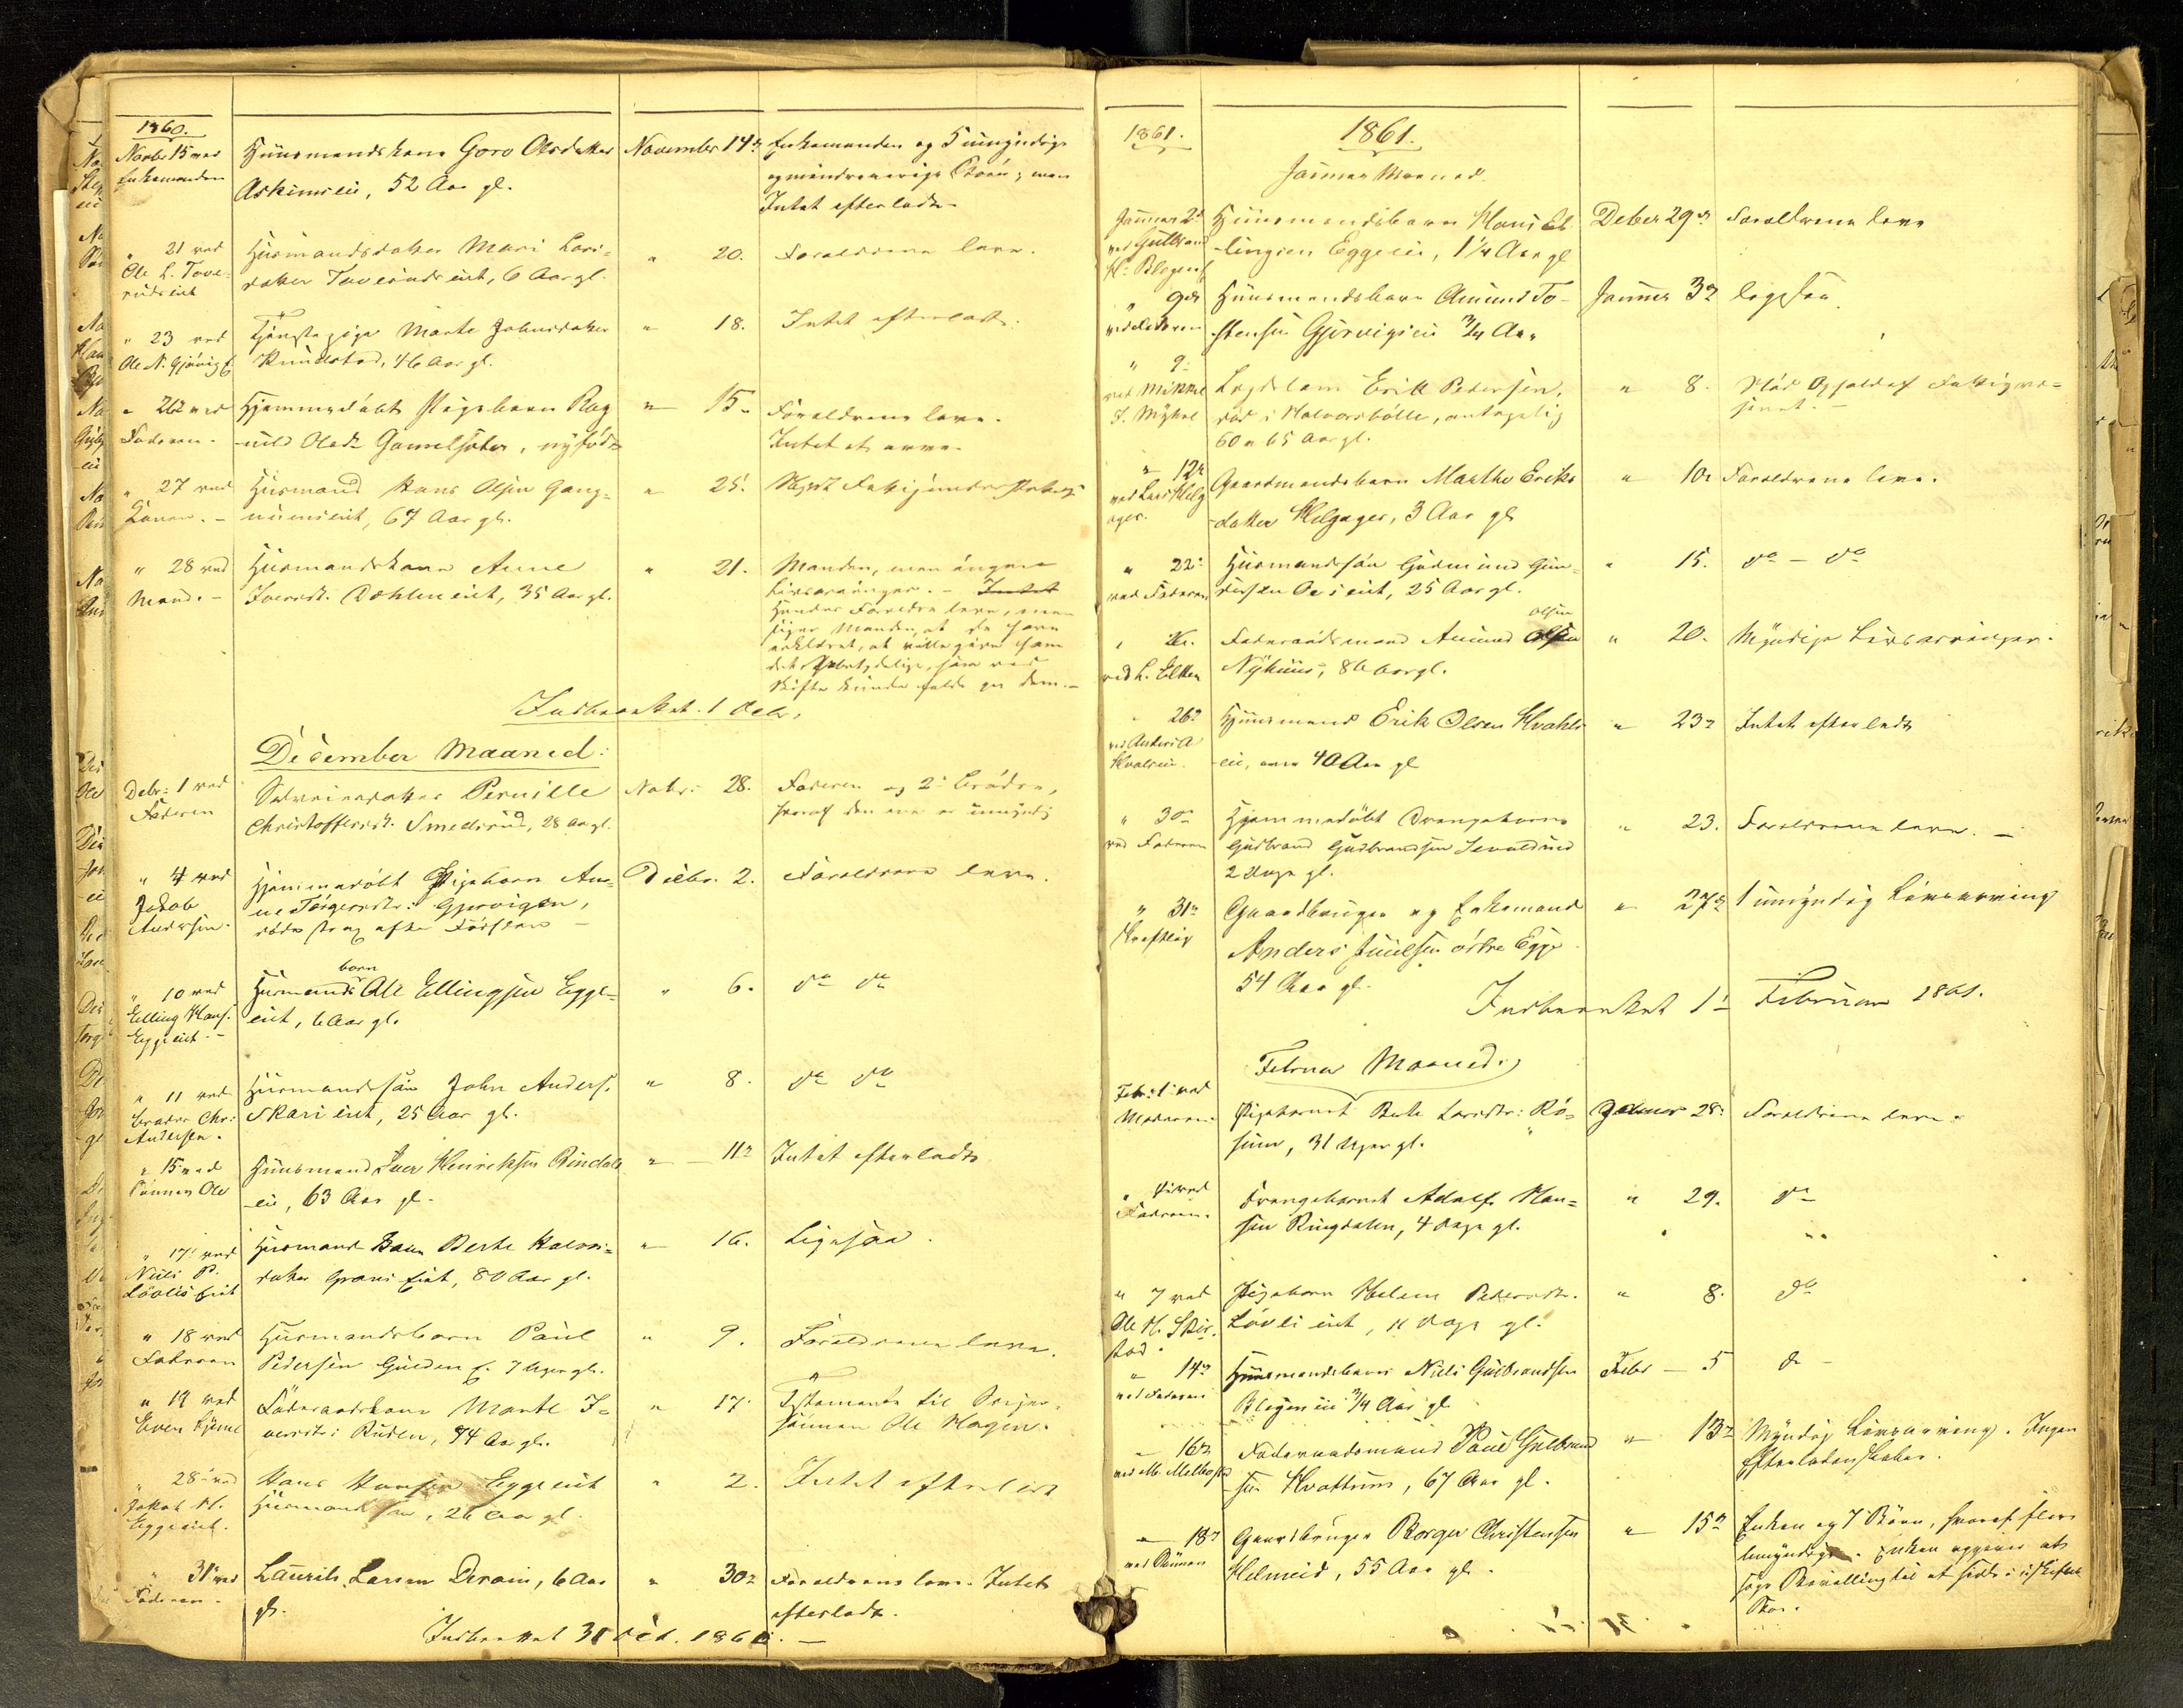 1860.
Novbr 15 ved
Enkemanden
Huusmandskone Goro Olsdatter
Askimseie, 52 Aar gl.
November 14de
Enkemanden og 5 umyndige
og mindreaarige Børn; men
Intet efterladt.
" 21 ved
Ole L. Tove-
rudseiet
Huusmandsdatter Mari Lars-
datter Toverudseiet, 6 Aar gl.
" 20.
Forældrene leve.
" 23 ved
Ole N. Gjøvig
Tjenestepige Marte Johnsdatter
Knudstad, 46 Aar gl.
" 18.
Intet efterladt.
" 26de ved
Faderen.
Hjemmedøbt Pigebarn Rag-
nild Olsdt. Gamelsæter, nyfødt
" 15.
Forældrene leve.
Intet at arve.
" 27 ved
Konen.
Husmand Hans Olsen Gang-
numseiet, 67 Aar gl.
" 25.
" 28 ved
Mand.
Huusmandskone Anne
Iversdt. Dæhleneiet, 35 Aar gl.
" 21.
Manden, men ingen
Livsarvinger. - Intet
Hendes Forældre leve, men
siger Manden, at de have
erklæret, at ville give ham
det Ubetydelige, som ved
Skifte kunde falde paa dem.
Indberettet 1 Decbr.
December Maaned:
Debr: 1 ved
Faderen
Pernille
Christoffersdt. Smedsrud, 28 Aar gl.
Novbr. 28.
Faderen og 2 Brødre,
hvoraf den ene er umyndig
" 4 ved
Jakob
Andersen.
Hjemmedøbt Pigebarn An-
ne Torgersdtr. Gjervigen,
døde strax efter Fødselen
Decbr. 2.
Forældrene leve.
" 10 ved
Elling Hans.
Eggeeiet.
barn
Husmands Ole Ellingsen Egge-
eiet, 6 Aar gl.
" 6.
do do
" 11 ved
Broder Chr:
Andersen.
Huusmandssøn John Anders.
Skarieiet, 25 Aar gl.
" 8.
do do
" 15 ved
Sønnen Ole
Huusmand Iver Henriksen Rindals
eie, 63 Aar gl.
" 11te
Intet efterladt
" 17 ved
Niels P.
Løvlieiet
Husmand Berte Halvors-
datter 80 Aar gl.
" 16.
Ligesaa.
" 18 ved
Faderen
Husmandsbarn Paul
Pedersen Gulden E. 7 Uger gl.
" 9.
Forældrene leve.
" 19 ved
Even
Føderaadskone Marte I-
versdtr: Ruden, 74 Aar gl.
" 17.
Testamente til
sønnen Ole Hagen.
" 28 ved
Jakob H.
Eggeeiet.
Hans Hansen Eggeeiet
Husmandssøn, 26 Aar gl.
" 2.
Intet efterladt
" 31te ved
Faderen.
Laurits Larsen Deroin, 6 Aar
gl.
" 30te
Forældrene leve. Intet
efterladt.
Indberettet 31 Dec. 1860.
1861.
1861.
Januar Maaned
Januar 2de
ved Gulbrand
H. Blegen
Huusmandsbarn Hans El-
lingsen Eggeeie, 1 1/4 Aar gl
Decber 29de
Forældrene leve
" 9de
ved Faderen
Huusmandsbarn Amund To-
stensen Gjervigseie 3/4 Aar
Januar 3de
ligesaa
" 9.
ved Mikkel
J. Mykel
Lægdslem Erik Pedersen,
død i Halvorsbølle, antagelig
60 a 65 Aar gl.
" 8.
Nød Ophold af Fattigvæ-
senet.
" 12te
ved Lars Helg
ager.
Gaardmandsbarn Marthe Eriks
datter Helgager, 3 Aar gl.
" 10.
Forældrene leve.
" 22.
ved Faderen
Huusmandssøn Gudmund Gun-
dersen Oeseiet, 25 Aar gl.
" 15.
do - do
ved L. Elken
Føderaadsmand Amund Olsen
Olsen
Nyhuus, 86 Aar gl.
" 20.
Myndige Livsarvinger.
" 26de
ved Anders A
Hvalseie.
Huusmand Erik Olsen Hvals
eie, over 40 Aar gl
" 23de
Intet efterladt
" 30te
ved Faderen
Hjemmedøbt Drengebarn
Gudbrand Gudbrandsen Sevaldrud
2 Dage gl.
" 23.
Forældrene leve.
" 31te
Skriftlig
Gaardbruger og Enkemand
Anders Juulsen østre Egge
54 Aar gl.
" 27de
1 umyndig Livsarving
Indberettet 1ste Februar 1861.
Februar Maaned.
Feb: 1 ved
Moderen.
Pigebarnet Berte Larsdtr: Rø-
sum, 31 Uger gl.
Januar 28.
Forældrene leve.
ved
Faderen.
Drengebarnet Adolf Han-
sen Ringdalen, 4 Dage gl.
" 29.
do
" 7 ved
Ole H. Skør.
stad.
Pigebarn Helene Pedersdtr.
Løvlieiet, 11 Dage gl.
" 8.
do
" 14de
ved Faderen
Huusmandsbarn Niels Gulbrandsen
Blegeneie 3/4 Aar gl
Febr - 5
do
" 16de
Føderaadsmand Poul Gulbrand
sen Hvattum, 67 Aar gl.
" 13de
Myndig Livsarving. Ingen
Efterladenskaber.
" 18de
ved Sønnen
Gaardbruger Borger Christensen
Helmeid, 55 Aar gl.
" 15de
Enken og 7 Børn, hvoraf flere
umyndige. Enken opgives at
søge Bevilling til at sidde i uskiftet
Bo.